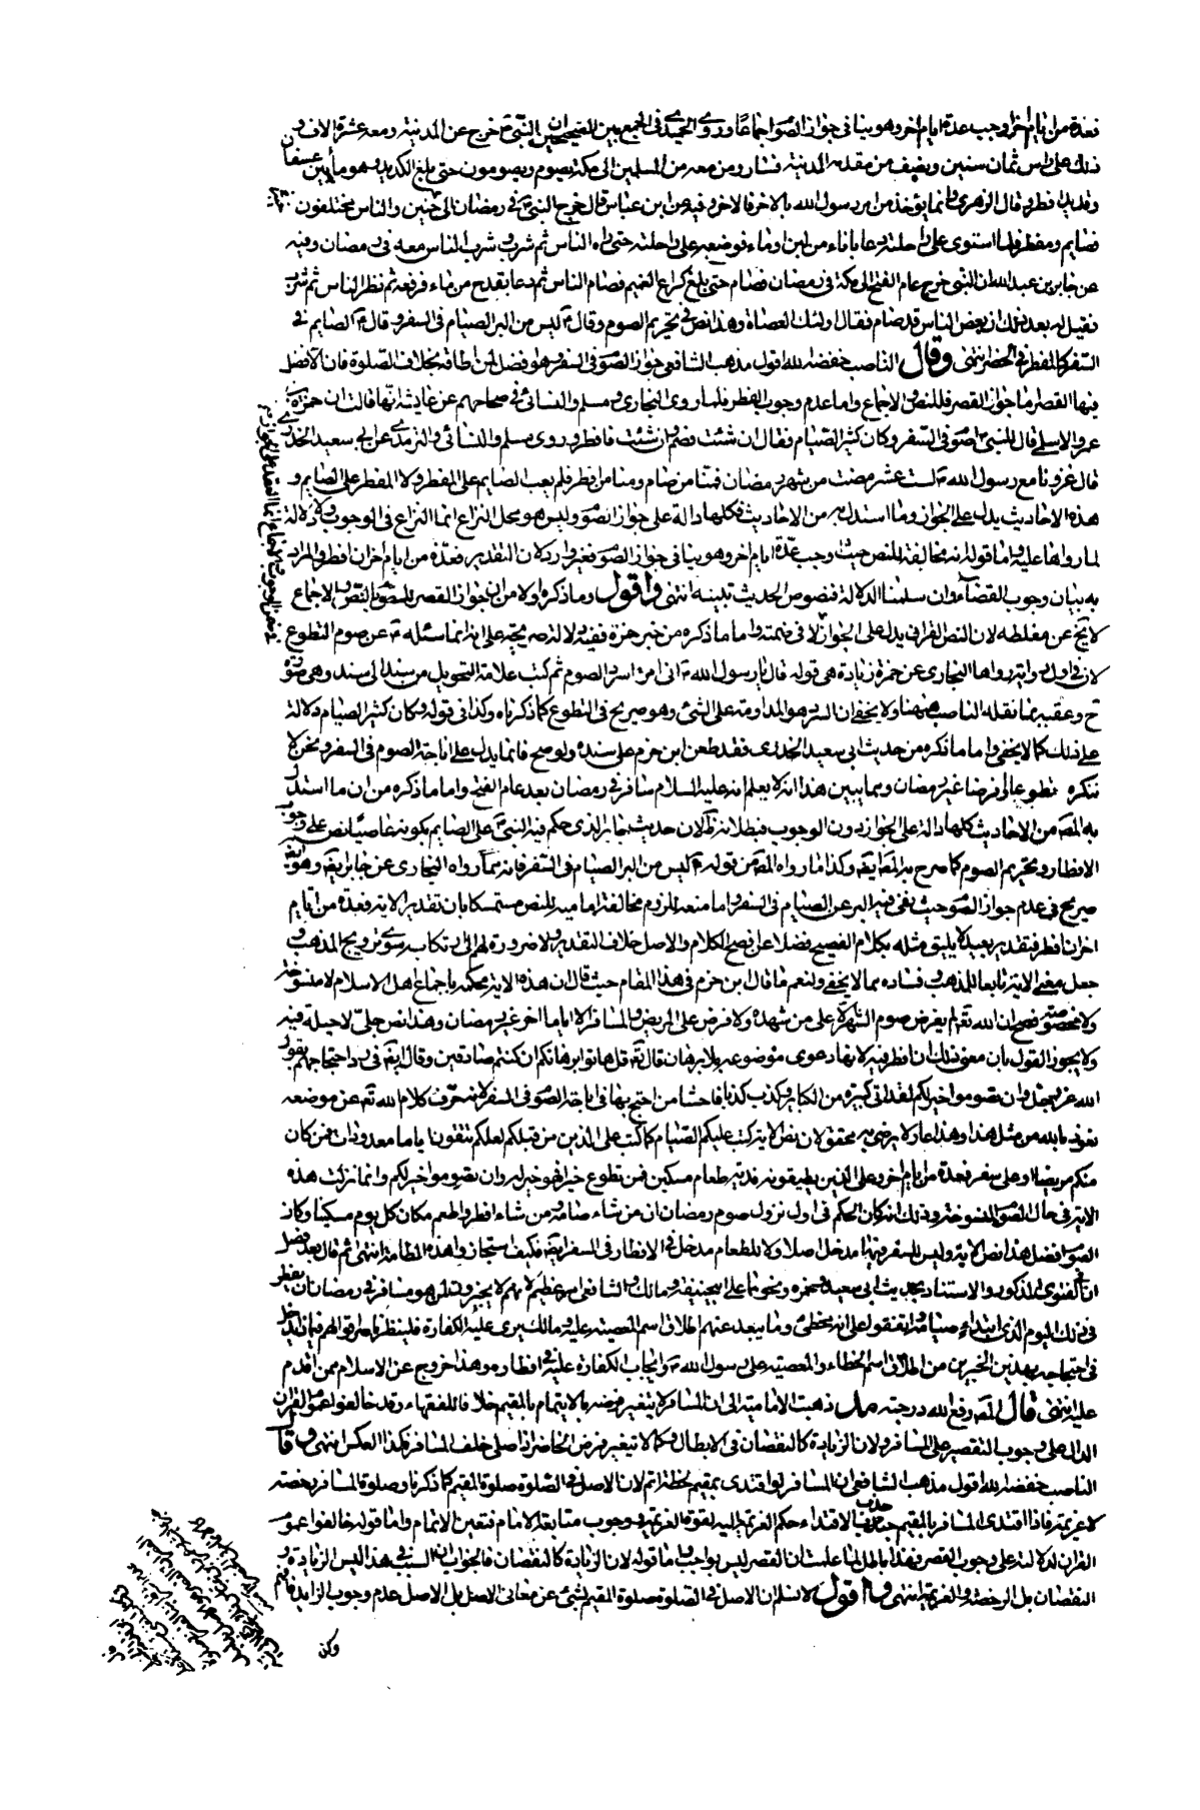 فعدة من ايام اخر اوجب عدة ايام اخر وهو ينافى جواز الصوم اجماعا وروى الحميدى فى الجمع بين الصحيحين ان النبى خرج عن المدينة ومعه عشرة الاف و
ذلك على راس ثمان سنين ونصف من مقدمه المدينة فسار ومن معه من المسلمين الى مكة يصوم ويصومون حتى بلغ الكديد وهو ما بين عسفان
وقديد افطر وقال الزهرى وانما يؤخذ من امر رسول الله بالاخر فالاخر وفيه عن ابن عباس قال خرج النبى فى رمضان الى حنين والناس مختلفون
فصايم ومفطر فلما استوى على راحلته دعا باناء من لبن او ماء فوضعه على راحلته حتى راه الناس ثم شرب وشرب الناس معه فى رمضان وفيه
عن جابر بن عبد الله ان النبى خرج عام الفتح الى مكة فى رمضان فصام حتى بلغ كراع الغميم فصام الناس ثم دعا بقدح من ماء فرفعه ثم نظر الناس ثم شرب
فقيل له بعد ذلك ان بعض الناس قد صام فقال اولئك العصاة وهذا نص فى تحريم الصوم وقال ليس من البر الصيام فى السفر وقال الصايم فى
السفر كالمفطر فى الحضر انتهى وقال الناصب خفضه الله اقول مذهب الشافعى جواز الصوم فى السفر وهو افضل لمن اطاقه بخلاف الصلوة فان الافضل
فيها القصر اما جواز القصر فللنص والاجماع واما عدم وجوب الفطر فلما روى البخارى ومسلم والنسائى فى صحاحهم عن عايشة انها قالت ان حمزة بن
عمرو الاسلمى قال للنبى اصوم فى السفر وكان كثير الصيام فقال ان شئت فصم وان شئت فافطر وروى مسلم والنسائى والترمذى عن ابى سعيد الخدرى
قال غزونا مع رسول الله لست عشر مضت من شهر رمضان فمنا من صام ومنا من افطر فلم يعب الصايم على المفطر ولا المفطر على الصايم و
هذه الاحاديث يدل على الجواز وما استدل به من الاحاديث فكلها دالة على جواز الصوم وليس هو محل النزاع انما النزاع فى الوجوب ولا دلالة
لما رواها عليه واما قوله انه مخالفة للنص حيث وجب عدة ايام اخر وهو ينافى جواز الصوم فغير وارد لان التقدير فعدة من ايام اخر ان افطر والمراد
به بيان وجوب القضاء وان سلمنا الدلالة فنصوص الحديث تبينه انتهى واقول وما ذكره اولا من ان جواز القصر للنص والاجماع
لا يخ عن مغلطة لان النص القرانى يدل على الجواز لا فى ضمنه واما ما ذكره من خبر حمزة ففيه دلالة صريحة على انه انما سئله عن صوم التطوع
لان فى اول رواية رواها البخارى عن حمزة زيادة هى قوله قال يا رسول الله انى امرؤ اسرد الصوم ثم كتب علامة التحويل من سند الى سند وهى صورة
ح وعقبه بما نقله الناصب هيهنا ولا يخفى ان السرد هو المداومة على الشئ وهو صريح فى التطوع كما ذكرناه وكذا فى قوله وكان كثير الصيام دلالة
على ذلك كما لا يخفى واما ما ذكره من حديث ابى سعيد الخدرى فقد طعن ابن حزم على سنده ولو صح فانما يدل على اباحة الصوم فى السفر ونحن لا
ننكره تطوعا او فرضا غير رمضان ومما يبين هذا انه لا يعلم انه عليه السلام سافر فى رمضان بعد عام الفتح واما ما ذكره من ان ما استدل
به المصنف من الاحاديث كلها دالة على الجواز دون الوجوب فبطلانه ظ لان حديث جابر الذى حكم فيه النبى على الصايم بكونه عاصيا نص على وجوب
الافطار وتحريم الصوم كما صرح به المصنف ايضا وكذا ما رواه المصنف من قوله ليس من البر الصيام فى السفر فانه مما رواه البخارى عن جابر ايضا وهو ايضا
صريح فى عدم جواز الصوم حيث نفى فيه البر عن الصيام فى السفر واما منعه للزوم مخالفة امامه للنص مستمسكا بان تقدير الاية فعدة من ايام
اخر ان افطر فتقدير بعيد لا يليق مثله بكلام الفصيح فضلا عن افصح الكلام والاصل خلاف التقدير ولا ضرورة لهم الى ارتكابه سوى ترويج المذهب و
جعل معنى الاية تابعا للمذهب وفساده مما لا يخفى ولنعم ما قال ابن حزم فى هذا المقام حيث قال ان هذه الاية محكمة باجماع اهل الاسلام لا منسوخة
ولا مخصوصة فصح ان الله تعالى لم يفرض صوم الشهر الا على من شهده ولا فرض على المريض والمسافر الا اياما اخر غير رمضان وهذا نص جلى لا حيلة فيه
ولا يجوز القول بان معنى ذلك ان افطر فيه لانها دعوى موضوعة بلا برهان قال قل هاتوا برهانكم ان كنتم صادقين وقال ايضا فى رد احتجاجهم بقول
الله عز وجل وان تصوموا خير لكم لقد اتى كبيرة من الكباير وكذب كذبا فاحشا من احتج بها فى اباحة الصوم فى السفر لانه حرف كلام الله عن موضعه
نعوذ بالله من مثل هذا وهذا عار لا يرضى به محقق لان نص الاية كتب عليكم الصيام كما كتب على الذين من قبلكم لعلكم تتقون اياما معدودات فمن كان
منكم مريضا او على سفر فعدة من ايام اخر وعلى الذين يطيقونه فدية طعام مسكين فمن تطوع خيرا فهو خير له وان تصوموا خير لكم وانما نزلت هذه
الاية فى حال الصوم المنسوخة وذلك انه كان الحكم فى اول نزول صوم رمضان ان من شاء صامه ومن شاء افطر واطعم مكان كل يوم مسكينا وكان
الصوم افضل هذا نص الاية وليس للسفر فيها مدخل اصلا ولا للطعام مدخل فى الافطار فى السفر ايضا فكيف استجازوا هذه الطامة انتهى ثم قال بعد فصل
ان الفتوى المذكور والاستناد بحديث ابى سعيد وحمزة ونحوهما على ابى حنيفة ومالك والشافعى امر عظيم لانهم لا يجيزون لمن هو مسافر فى رمضان ان يفطر
فى ذلك اليوم الذى ابتداء صيامه واتفقوا على انه مخطئ وما يبعد عنهم اطلاق اسم المعصية عليه ومالك يرى عليه الكفارة فلينظر ناصر اقوالهم فيما يدخل
فى احتجاجه بهذين الخبرين من اطلاق اسم الخطاء والمعصية على رسول الله وايجاب الكفارة عليه فى افطاره وهذا خروج عن الاسلام ممن اقدم
عليه انتهى قال المصنف رفع الله درجته ذهبت الامامية الى ان المسافر لا يتغير فرضه بالايتمام بالمقيم خلافا للفقهاء وقد خالفوا عموم القران
الدال على وجوب التقصير على المسافر ولان الزيادة كالنقصان فى الابطال وكما لا يتغير فرض الحاضر اذا صلى خلف المسافر فكذا العكس انتهى وقال
الناصب خفضه الله اقول مذهب الشافعى ان المسافر لو اقتدى بمقيم لحظة اتم لان الاصل فى الصلوة صلوة المقيم كما ذكرنا وصلوة المسافر رخصة
لا عزيمة فاذا اقتدى المسافر بالمقيم جذب الاقتداء حكم العزيمة اليه لقوة العزيمة ووجوب متابعة الامام فتعين الاتمام واما قوله خالفوا عموم
القران لدلالته على وجوب القصر فهذا باطل لما علمت ان القصر ليس بواجب واما قوله لان الزيادة كالنقصان فالجواب ان السبب فى هذا ليس الزيادة و
النقصان بل الرخصة والعزيمة انتهى واقول لا نسلم ان الاصل فى الصلوة صلوة المقيم بشئ عن معانى الاصل بل الاصل عدم وجوب الزايد
وكن